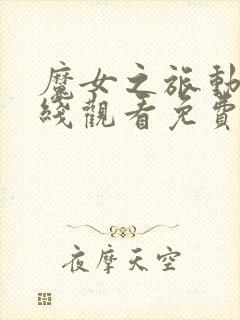 魔女之旅動
綫觀看免費
夜摩天空